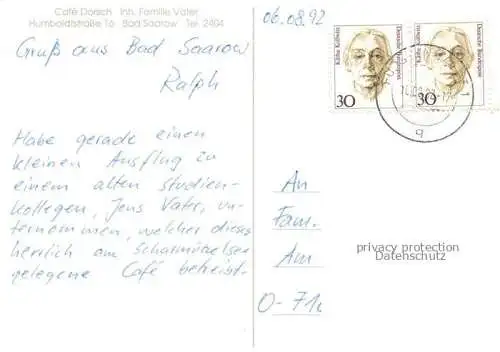 Café Dorsch Inh. Familie Vater
Humboldtstraße 16 Bad Saarow Tel. 2404
06.08.92
Gruß aus Bad Saarow
Ralph
Habe gerade einen
kleinen Ausflug zu
einem alten Studien-
kollegen, Jens Vater, un-
ternommen, welcher dieses
herrlich am Scharmützelsee
gelegene Café betreibt.
Käthe Kollwitz
Deutsche Bundespost
30
Käthe Kollwitz
Deutsche Bundespost
30
q
An
Fam.
Am
O-710
privacy protection
Datenschutz